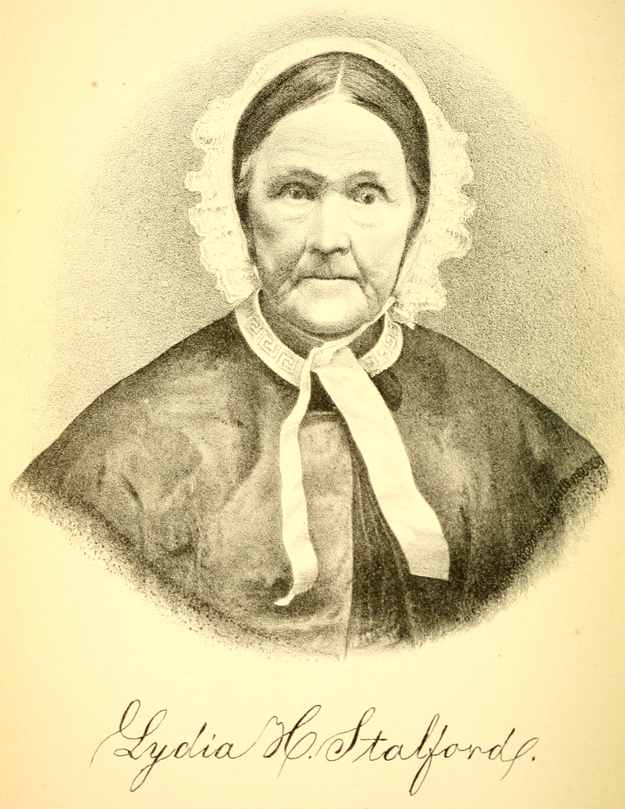 Lydia H. Stalford.